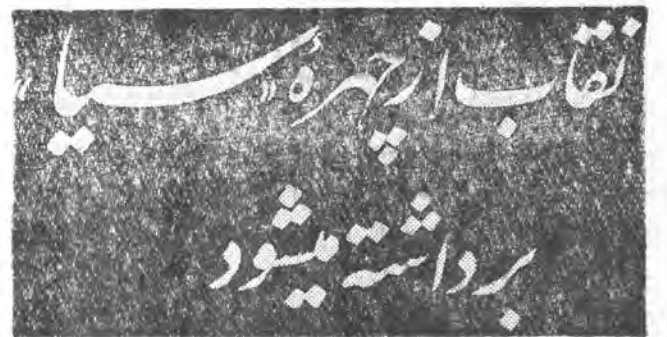 نقاب از چهرهٔ «سیا»
برداشته میشود